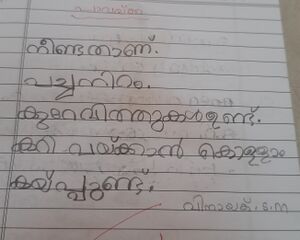 പാവയ്ക്ക
നീണ്ടതാണ്.
പച്ചനിറം.
കുറെവിത്തുകൾഉണ്ട്.
കറി വയ്ക്കാൻ കൊള്ളാം
കയ്പ്പുണ്ട്.
വിനായക്. s.m